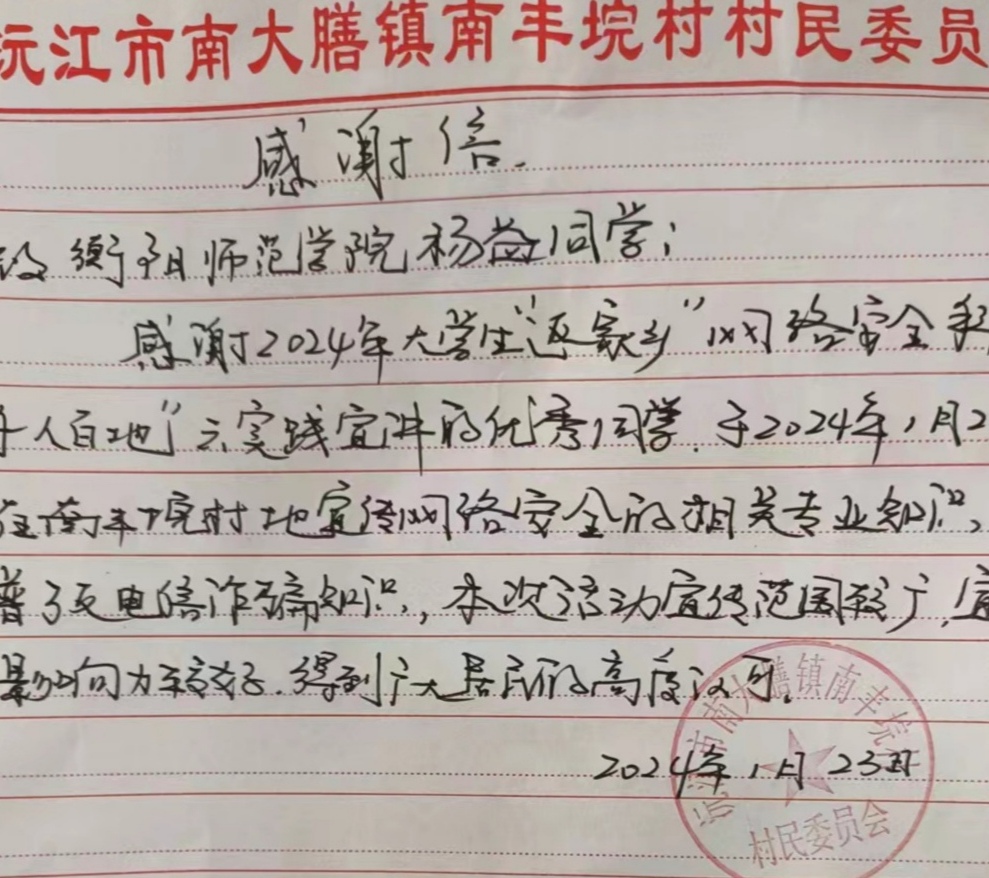 沅江市南大膳镇南丰垸村村民委员
感谢信.
衡阳师范学院杨益同学:
感谢2024年大学生"返家乡"网络安全科
千人百地"云实践宣讲的优秀同学.于2024年1月2
在南丰垸村地宣传网络安全的相关专业知识,
普了反电信诈骗知识,本次活动宣传范围较广,宣
影响力较好.得到广大居民的高度认可.
2024年1月23日
沅江市南大膳镇南丰垸
村民委员会